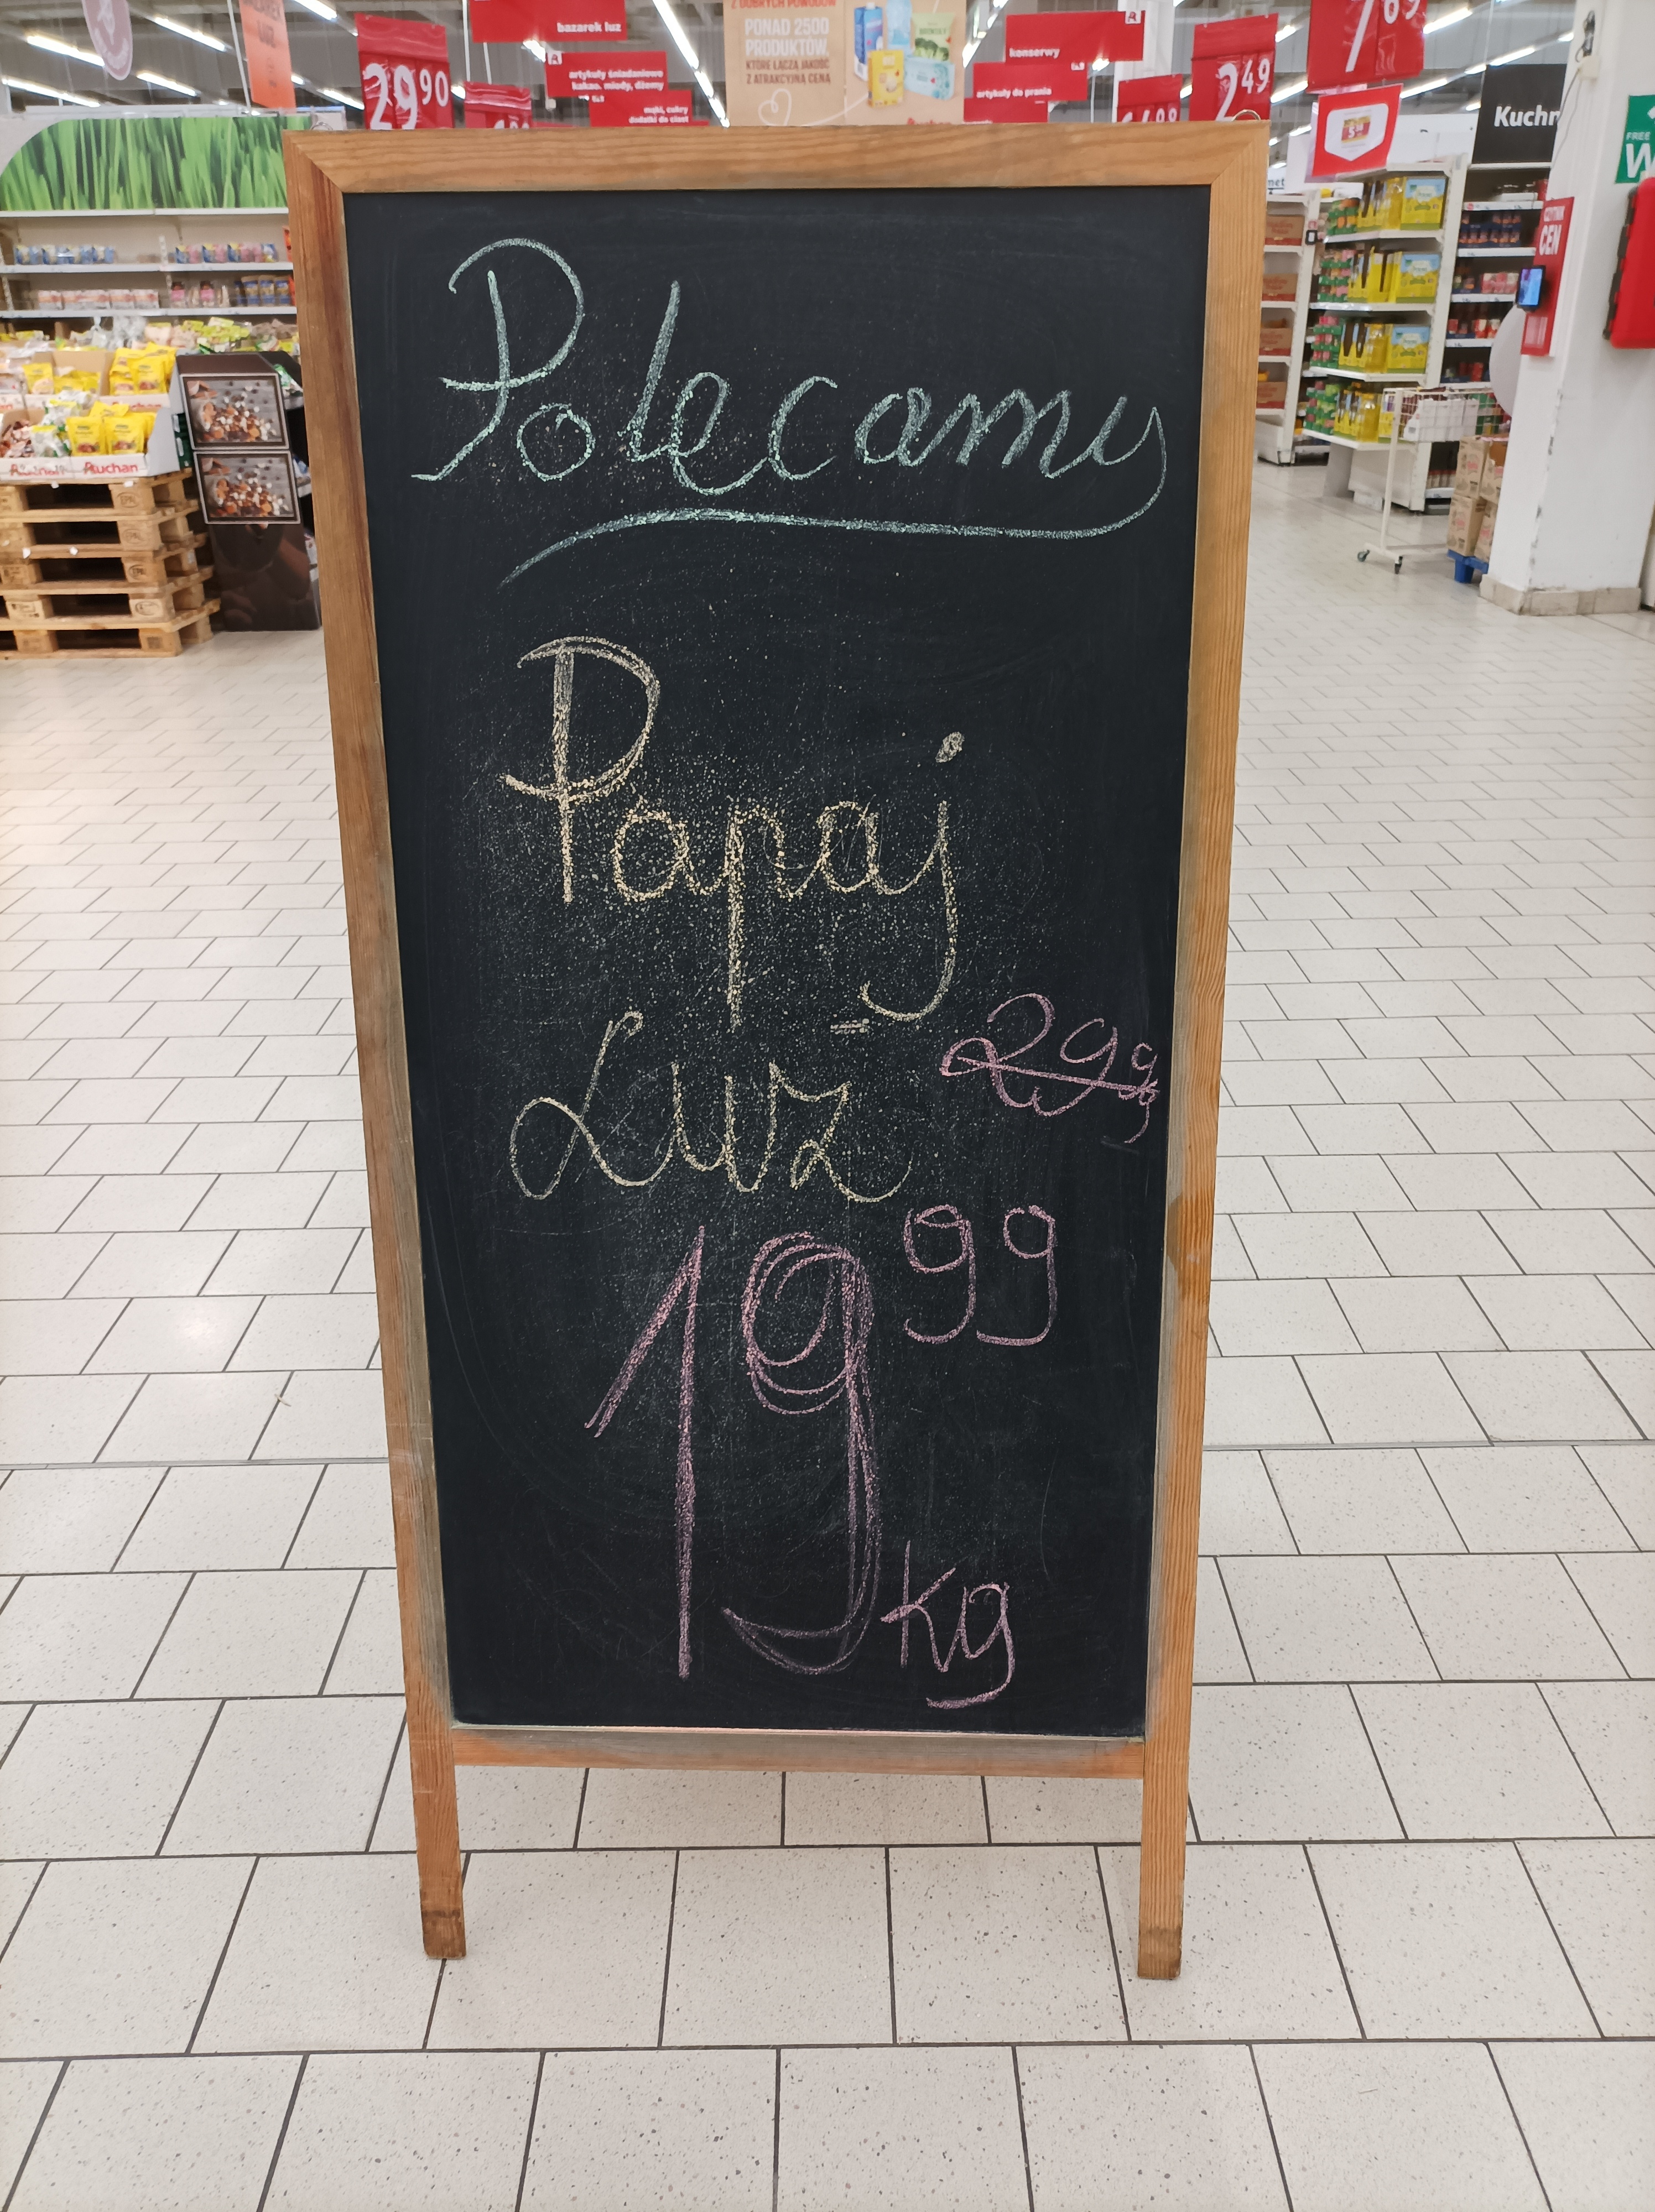 bazarek luz
artykuły śniadaniowe
kakao, miody, dżemy
mąki, cukry
dodatki do ciast
29 90
Z DOBRYCH POWODÓW
PONAD 2500
PRODUKTÓW,
KTÓRE ŁĄCZĄ JAKOŚĆ
Z ATRAKCYJNĄ CENĄ
konserwy
artykuły do prania
2 49
7 69
Kuchn
FREE
W
CEN
Auchan
Auchan
Polecamy
Papaj
Luz
29 99
19 99
kg